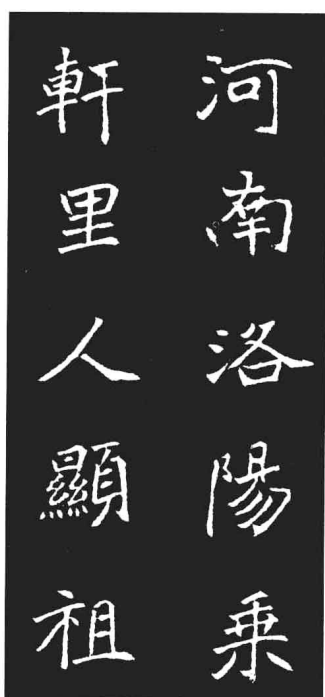 河南洛陽乗
軒里人顯祖